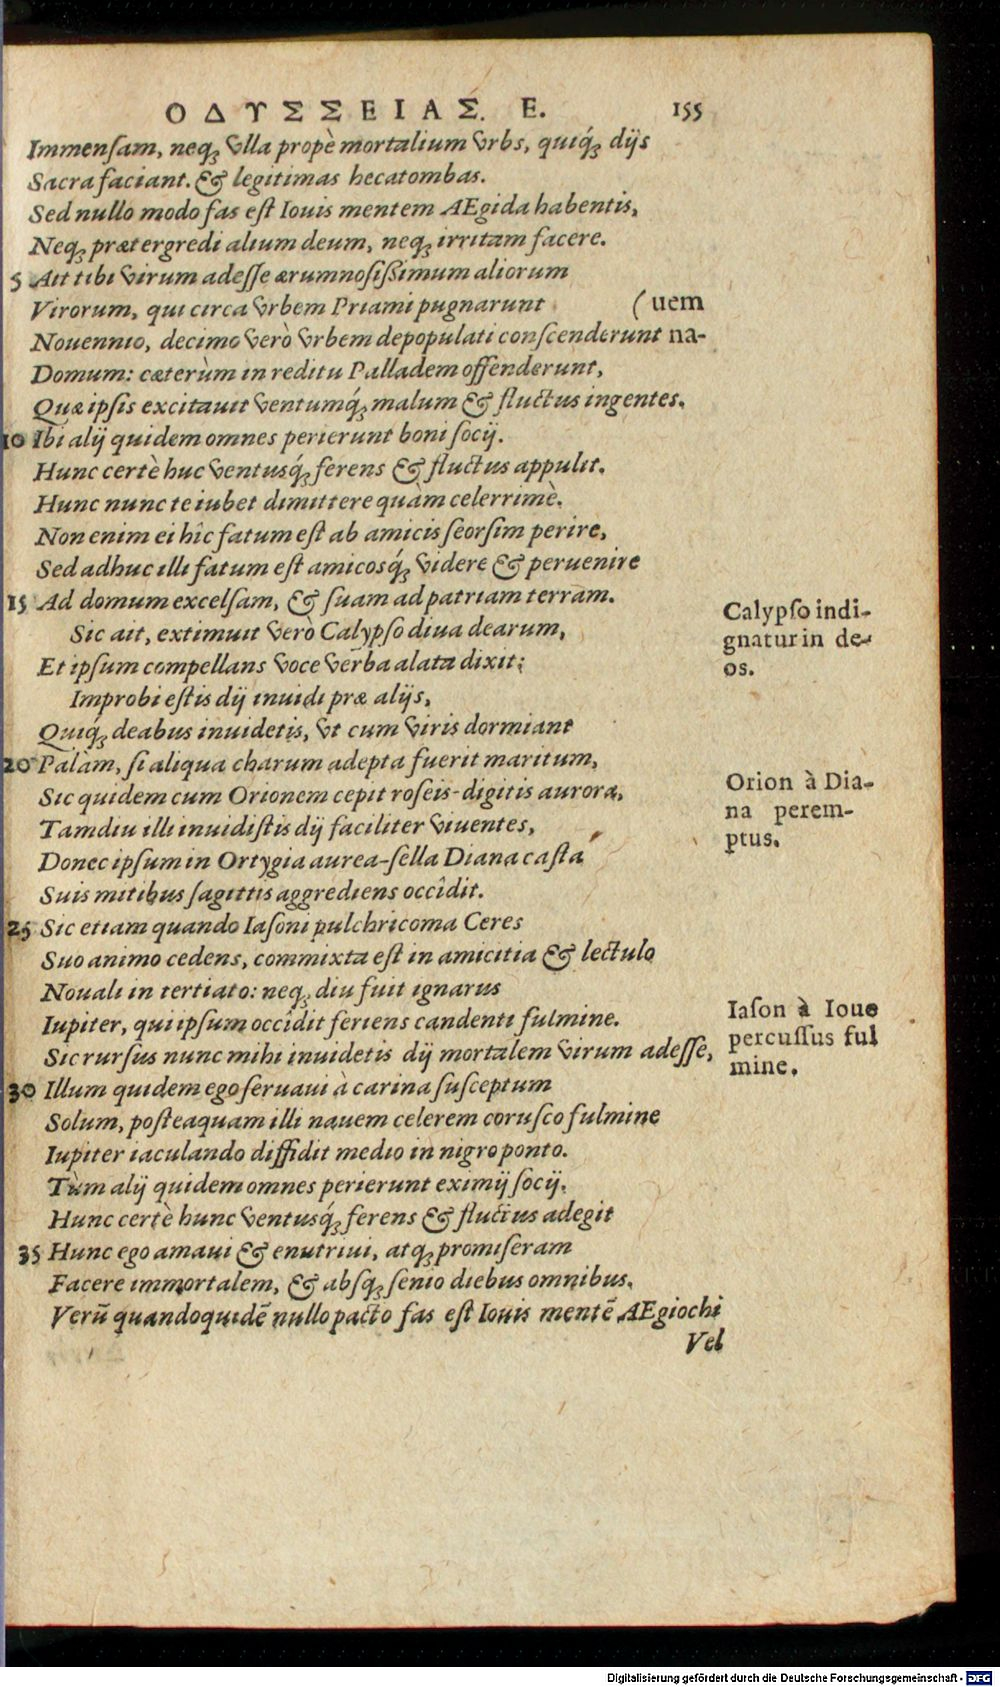 ΟΔΥΣΣΕΙΑΣ. Ε. 155
Immenſam, neq; vlla propè mortalium vrbs, quiq́; dijs
Sacra faciant. & legitimas hecatombas.
Sed nullo modo fas eſt Iouis mentem AEgida habentis,
Neq; prætergredi alium deum, neq; irritam facere.
5 Ait tibi virum adeſſe ærumnoſiſsimum aliorum
Virorum, qui circa vrbem Priami pugnarunt (uem
Nouennio, decimo verò vrbem depopulati conſcenderunt na-
Domum: cæterùm in reditu Palladem offenderunt,
Quæ ipſis excitauit ventumq́; malum & fluctus ingentes.
10 Ibi alij quidem omnes perierunt boni ſocij.
Hunc certè huc ventusq́; ferens & fluctus appulit.
Hunc nunc te iubet dimittere quàm celerrimè.
Non enim ei hîc fatum eſt ab amicis ſeorſim perire,
Sed adhuc illi fatum eſt amicosq́; videre & peruenire
15 Ad domum excelſam, & ſuam ad patriam terram.
Sic ait, extimuit verò Calypſo diua dearum,
Et ipſum compellans voce verba alata dixit;
Improbi eſtis dij inuidi præ alijs,
Quiq́; deabus inuidetis, vt cum viris dormiant
20 Palàm, ſi aliqua charum adepta fuerit maritum,
Sic quidem cum Orionem cepit roſeis-digitis aurora,
Tamdiu illi inuidiſtis dij faciliter viuentes,
Donec ipſum in Ortygia aurea-ſella Diana caſta
Suis mitibus ſagittis aggrediens occîdit.
25 Sic etiam quando Iaſoni pulchricoma Ceres
Suo animo cedens, commixta eſt in amicitia & lectulo
Nouali in tertiato: neq; diu fuit ignarus
Iupiter, qui ipſum occîdit feriens candenti fulmine.
Sic rurſus nunc mihi inuidetis dij mortalem virum adeſſe,
30 Illum quidem ego ſeruaui à carina ſuſceptum
Solum, poſteaquam illi nauem celerem coruſco fulmine
Iupiter iaculando diffidit medio in nigro ponto.
Tùm alij quidem omnes perierunt eximij ſocij.
Hunc certè hunc ventusq́; ferens & fluctus adegit
35 Hunc ego amaui & enutriui, atq; promiſeram
Facere immortalem, & absq; ſenio diebus omnibus.
Verũ quandoquidẽ nullo pacto fas eſt Iouis mentẽ AEgiochi
Vel
Calypſo indi-
gnatur in de-
os.
Orion à Dia-
na perem-
ptus.
Iaſon à Ioue
percuſſus ful
mine.
Digitalisierung gefördert durch die Deutsche Forschungsgemeinschaft - DFG